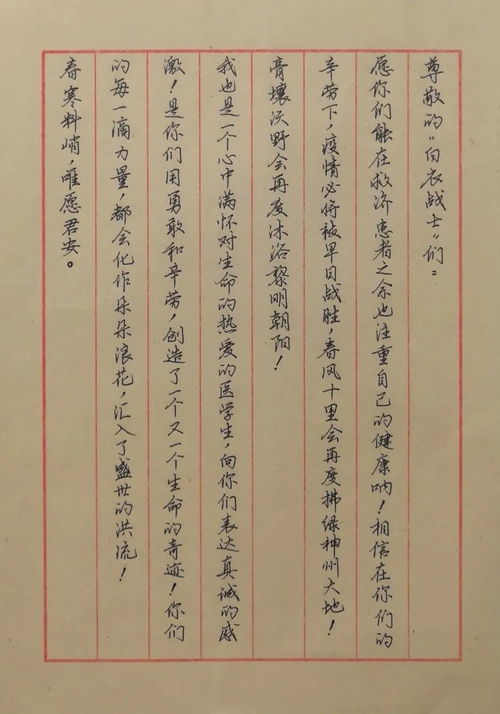 尊敬的“白衣战士”们：
愿你们能在救济患者之余也注重自己的健康呐！相信在你们的
辛劳下，疫情必将被早日战胜，春风十里会再度拂绿神州大地！
膏壤沃野会再度沐浴黎明朝阳！
我也是一个心中满怀对生命的热爱的医学生，向你们表达真诚的感
激！是你们用勇敢和辛劳，创造了一个又一个生命的奇迹！你们
的每一滴力量，都会化作朵朵浪花，汇入了盛世的洪流！
春寒料峭，唯愿君安。